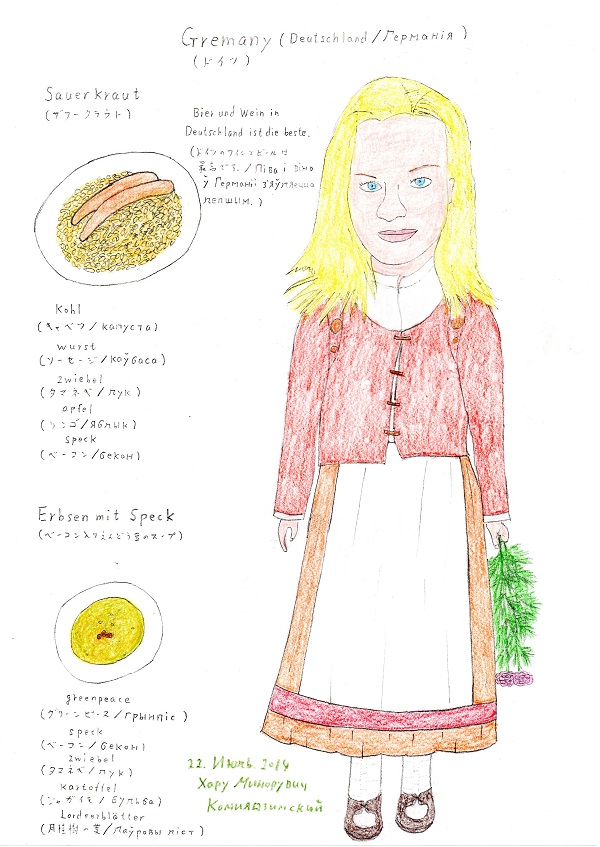 Gremany (Deutschland/Германія)
(ドイツ)
Sauerkraut
(ザワークラウト)
Bier und Wein in
Deutschland ist die beste.
(ドイツのワインとビールは
最高です。/Піва і віно
ў Германіі з'яўляецца
лепшым.)
Kohl
(キャベツ/капуста)
wurst
(ソーセージ/каўбаса)
zwiebel
(タマネギ/лук)
apfel
(リンゴ/яблык)
speck
(ベーコン/бекон)
Erbsen mit Speck
(ベーコン入りえんどう豆のスープ)
greenpeace
(グリーンピース/Грынпіс)
speck
(ベーコン/бекон)
zwiebel
(タマネギ/лук)
kartoffel
(ジャガイモ/бульба)
Lordeerblätter
(月桂樹の葉/лаўровы ліст)
22. Июль 2019
Хару Минорувич
Комиядзимский